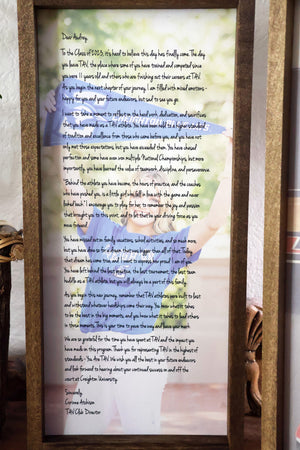 Dear Audrey,
To the Class of 2023, it's hard to believe this day has finally come. The day
you leave TAV, the place where some of you have trained and competed since
you were 11 years old and others who are finishing out their careers at TAV.
As you begin the next chapter of your journey, I am filled with mixed emotions -
happy for you and your future endeavors, but sad to see you go.
I want to take a moment to reflect on the hard work, dedication, and sacrifices
that you have made as a TAV athlete. You have been held to a higher standard
of tradition and excellence from those who came before you, and you have not
only met those expectations, but you have exceeded them. You have chased
perfection and some have even won multiple National Championships, but more
importantly, you have learned the value of teamwork, discipline, and perseverance.
"Behind the athlete you have become, the hours of practice, and the coaches
who have pushed you, is a little girl who fell in love with the game and never
looked back." I encourage you to play for her, to remember the joy and passion
that brought you to this point, and to let that be your driving force as you
move forward.
You have missed out on family vacations, school activities, and so much more,
but you have done so for a dream that was bigger than all of that. Today,
that dream has come true, and I want to express how proud I am of you.
You have left behind the best practice, the best tournament, the best team
huddle as a TAV athlete, but you will always be a part of this family.
As you begin this new journey, remember that TAV athletes were built to last
and withstand whatever hardships come their way. You know what it takes
to be the best in the big moments, and you know what it takes to lead others
in those moments, this is your time to pave the way and leave your mark.
We are so grateful for the time you have spent at TAV and the impact you
have made on this program. Thank you for representing TAV in the highest of
standards - You Are TAV. We wish you all the best in your future endeavors
and look forward to hearing about your continued success on and off the
court at Creighton University.
Sincerely,
Corinne Atchison
TAV Club Director